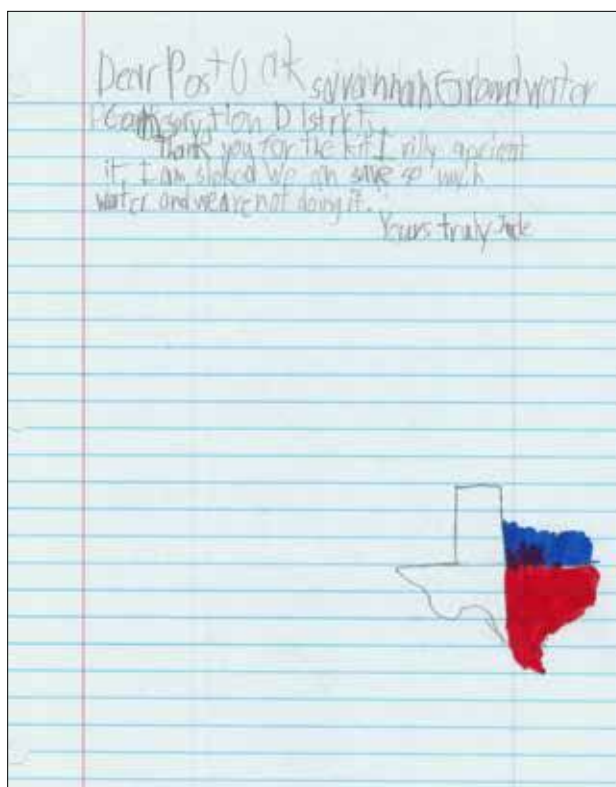 Dear Post Oak savannah Groundwater
Consorvtion District,
Thank you for the kit I rilly apricent
it, I am shoked we can save so much
water and we are not doing it.
Yours truly Jade